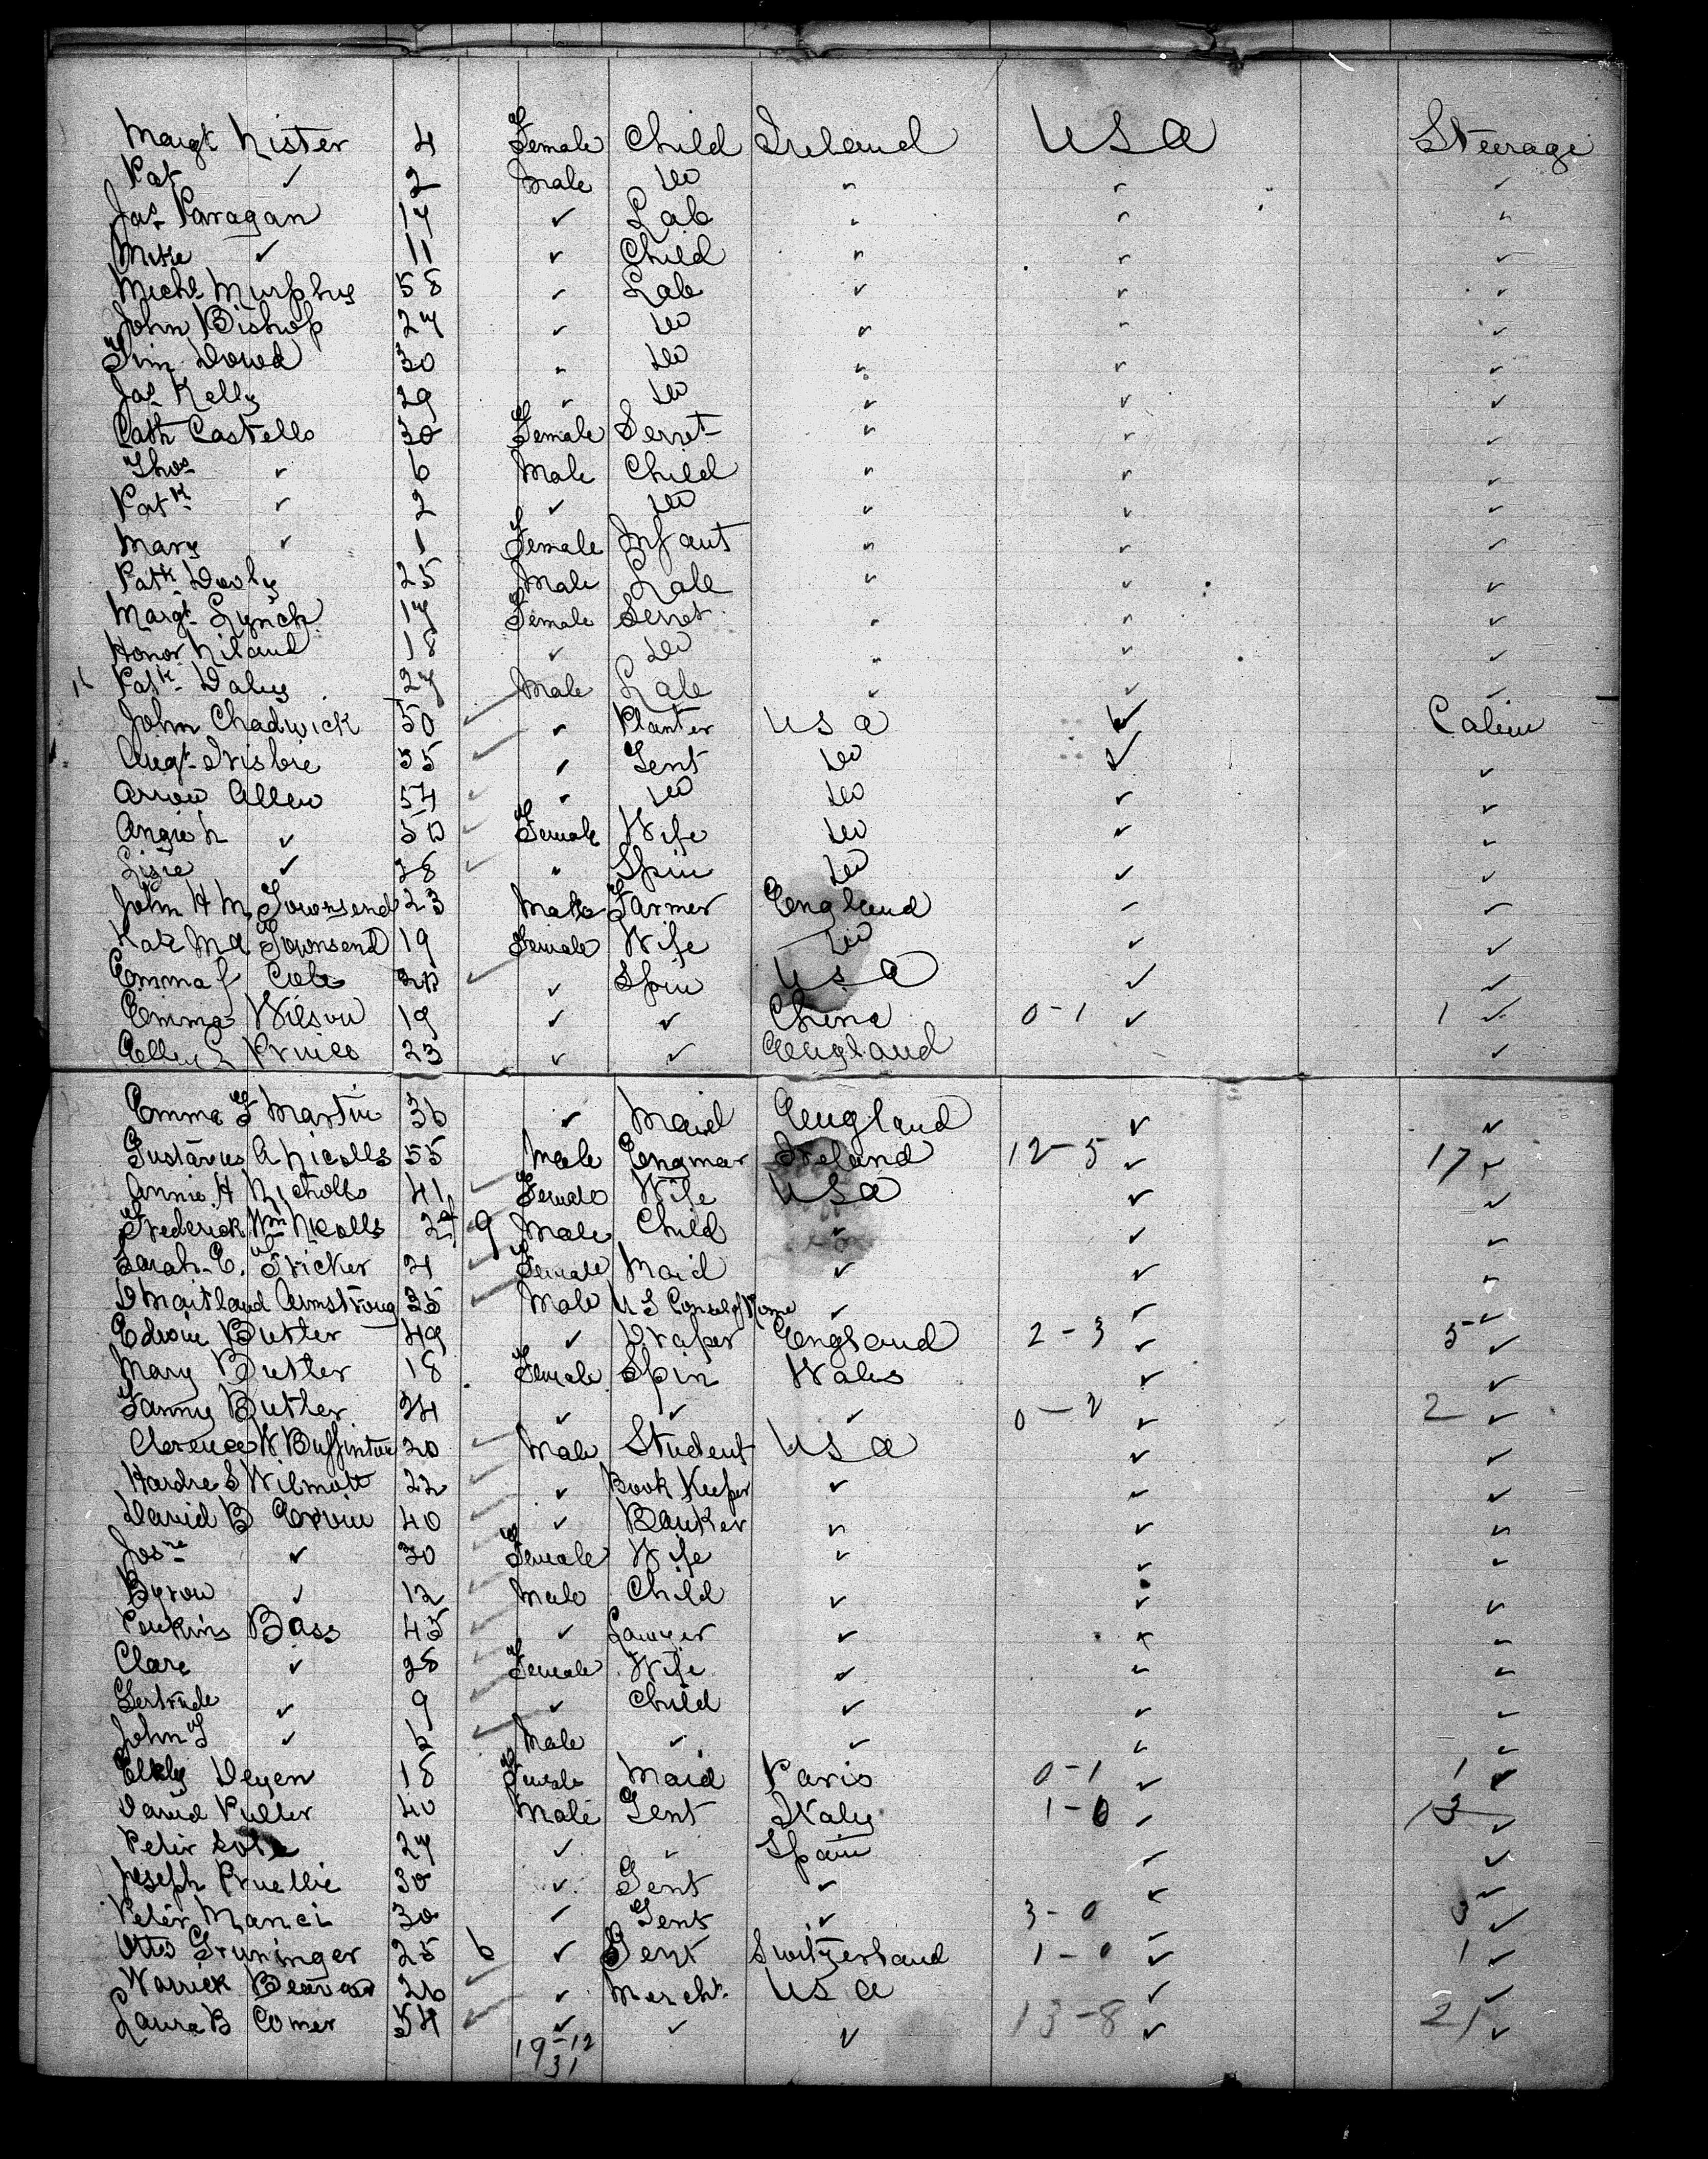 Margt Nister 4 Female Child Ireland USA Steerage
Pat ✓ 2 Male Do " " "
Jas Paragan 17 ✓ Lab " " "
Mike ✓ 11 ✓ Child " " "
Michl Murphy 58 ✓ Lab " " "
John Bishop 27 ✓ Do " " "
Tim Dowd 30 " Do " " "
Jas Kelly 29 ✓ Do " " "
Cath Costello 30 Female Servt " " "
Thos ✓ 6 Male Child " " "
Patk ✓ 2 ✓ Do " " "
Mary ✓ 1 Female Infant " " "
Patk Dooly 25 Male Lab " " "
Margt Lynch 17 Female Servt " " "
Honor Niland 18 ✓ Do " " "
Patk Daley 27 Male Lab " " "
John Chadwick 50 ✓ " Planter USA ✓ Cabin
Augt Frisbie 35 ✓ " Gent Do ✓ ✓
Arrow Allen 54 ✓ " Do Do ✓ ✓
Angie N ✓ 50 ✓ Female Wife Do ✓ ✓
Lisie ✓ 28 ✓ " Spin Do ✓ ✓
John H M Townsend 23 Male Farmer England ✓ ✓
Kate Ma Townsend 19 Female Wife Do ✓ ✓
Emma J Cole ✓ ✓ Spin USA ✓ ✓
Emma Wilson 19 ✓ ✓ China 0-1 ✓ 1 ✓
Ellen 23 ✓ ✓ England ✓
Emma F Martin 36 ✓ Maid England ✓ ✓
Gustavus A Nicolls 55 Male Ireland 12-5 ✓ 17 ✓
Annie H Nicholls 41 ✓ Female Wife USA ✓ ✓
Frederick Wm Nicolls 9 Male Child ✓ ✓ ✓
Sarah E. Fricker 21 ✓ Female Maid ✓ ✓ ✓
D Maitland Armstrong 35 ✓ Male U S Consul of Rome ✓ ✓ ✓
Edwin Butler 49 ✓ Draper England 2-3 ✓ 5 ✓
Mary Butler 18 Female Spin Wales ✓ ✓
Fanny Butler 24 ✓ ✓ ✓ 0-2 ✓ 2 ✓
Clarence W Buffinton 20 ✓ Male Student USA ✓ ✓
Hardre S Wilmott 22 ✓ ✓ Book Keeper ✓ ✓ ✓
David B Ervin 40 ✓ ✓ Banker ✓ ✓ ✓
Josne ✓ 30 ✓ Female Wife ✓ ✓ ✓
Byron ✓ 12 ✓ Male Child ✓ ✓ ✓
Perkins Bass 45 ✓ ✓ Lawyer ✓ ✓ ✓
Clara ✓ 28 ✓ Female Wife ✓ ✓ ✓
Gertrude ✓ 9 ✓ ✓ Child ✓ ✓ ✓
John F ✓ 6 ✓ Male ✓ ✓ ✓ ✓
Deyen 18 Female Maid Paris 0-1 ✓ 1 ✓
David Puller 40 Male Gent Italy 1-0 ✓ ✓
Peter 27 ✓ ✓ Spain ✓ ✓
Joseph Pruellie 30 ✓ Gent ✓ ✓ ✓
Peter Manci 30 ✓ Gent ✓ 3-0 ✓ 3 ✓
Otto Gruninger 25 6 ✓ Gent Switzerland 1-0 ✓ 1 ✓
Warrick 26 ✓ ✓ Mercht USA ✓ ✓
Laura B Comer 54 ✓ ✓ ✓ ✓ 13-8 ✓ 21 ✓
19-12
31